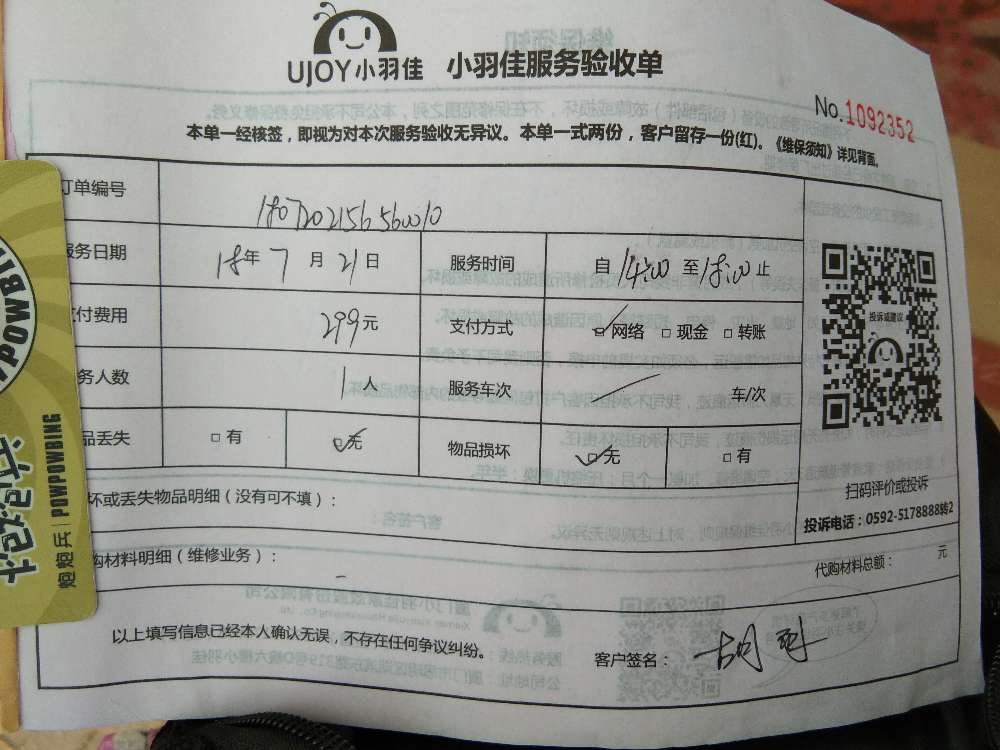 UJOY小羽佳 小羽佳服务验收单
No.1092352
本单一经核签，即视为对本次服务验收无异议。本单一式两份，客户留存一份(红)。《维保须知》详见背面。
订单编号
服务日期 18年 7 月 21 日 服务时间 自 14:00 至 18:00 止
付费用 299元 支付方式 网络 现金 转账
务人数 1人 服务车次 车/次
品丢失 有 无 物品损坏 无 有
投诉或建议
扫码评价或投诉
投诉电话：0592-5178888转2
坏或丢失物品明细（没有可不填）：
购材料明细（维修业务）：
代购材料总额： 元
以上填写信息已经本人确认无误，不存在任何争议纠纷。
客户签名：
POWPOWBING
炮炮兵